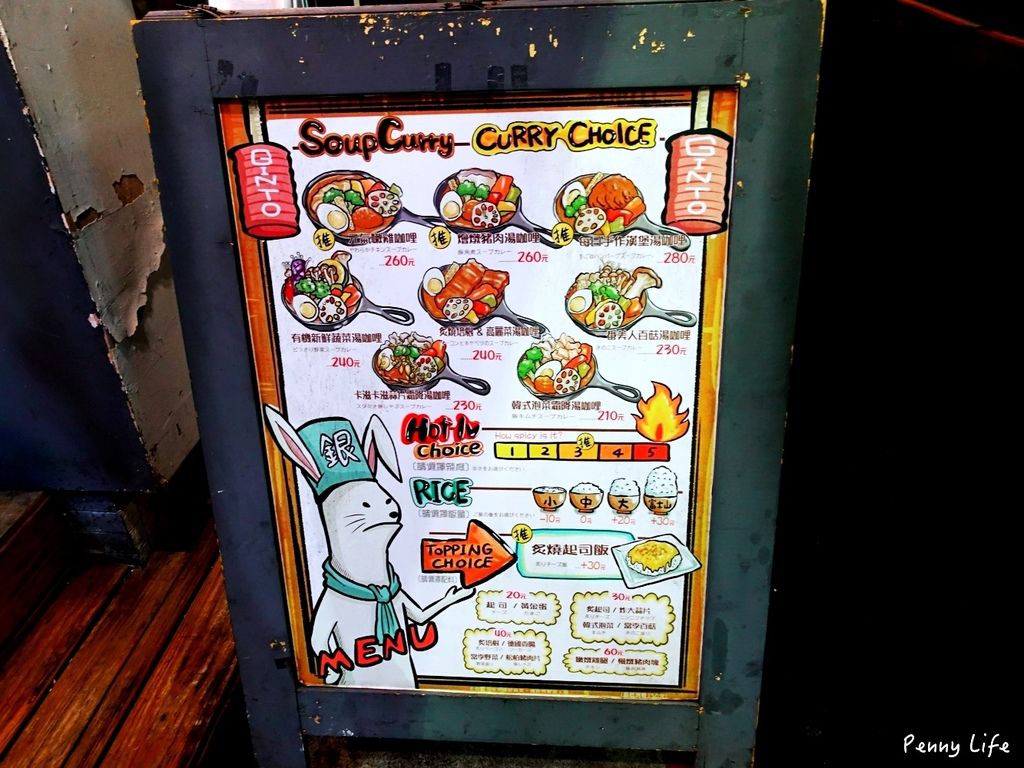 SoupCurry CURRY CHOICE
GINTO
GINTO
推 元氣嫩雞咖哩
やわらかチキンスープカレー
260元
推 燴燉豬肉湯咖哩
豚角煮スープカレー
260元
推 每日手作漢堡湯咖哩
まごねハンバーグスープカレー
280元
有機新鮮蔬菜湯咖哩
どっさり野菜スープカレー
240元
炙燒培根 & 高麗菜湯咖哩
240元
一番美人百菇湯咖哩
きのこスープカレー
230元
卡滋卡滋蒜片霜降湯咖哩
230元
韓式泡菜霜降湯咖哩
豚キムチスープカレー
210元
Hot-lv Choice
How spicy is it?
推
1 2 3 4 5
RICE
小 中 大 富士山
-10元 0元 +20元 +30元
TOPPING CHOICE
推 炙燒起司飯
炙りチーズ飯 +30元
20元
起司 / 黃金蛋
チーズ
30元
炙起司 / 炸大蒜片
韓式泡菜 / 當季百菇
キムチ
40元
炙培根 / 德國香腸
當季野菜 / 松柏豬肉片
60元
嫩燉雞腿 / 慢燉豬肉塊
チキン
銀
MENU
Penny Life